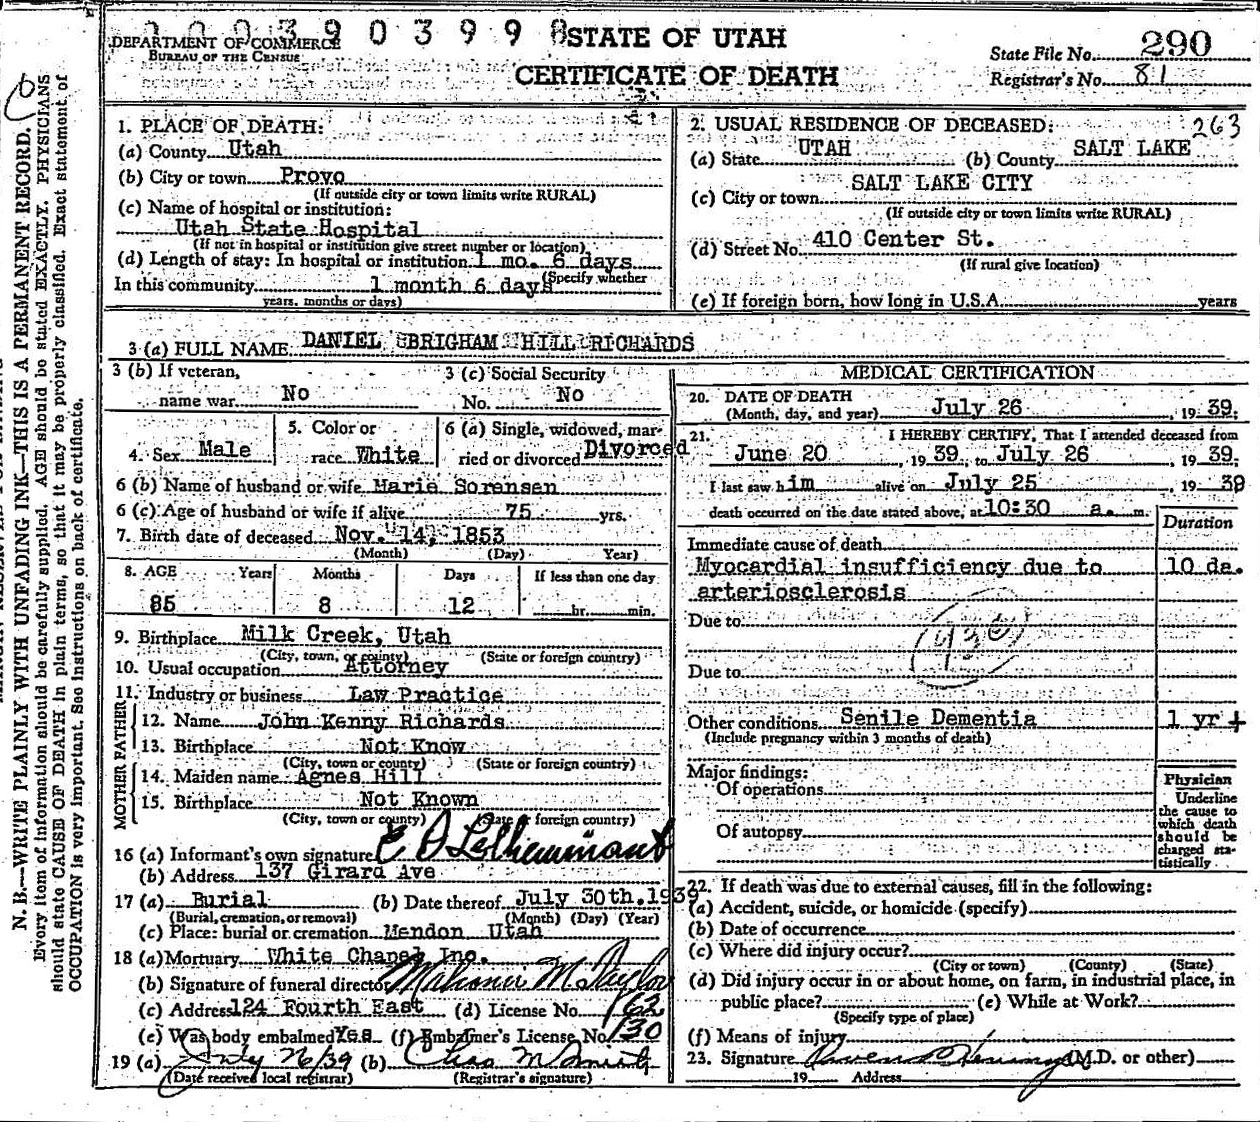 0 0 0 3 9 0 3 9 9 8
STATE OF UTAH
DEPARTMENT OF COMMERCE
BUREAU OF THE CENSUS
CERTIFICATE OF DEATH
State File No. 290
Registrar's No. 81
N. B.—WRITE PLAINLY WITH UNFADING INK—THIS IS A PERMANENT RECORD.
Every item of information should be carefully supplied. AGE should be stated EXACTLY. PHYSICIANS
should state CAUSE OF DEATH in plain terms, so that it may be properly classified. Exact statement of
OCCUPATION is very important. See instructions on back of certificate.
1. PLACE OF DEATH:
(a) County Utah
(b) City or town Provo
(If outside city or town limits write RURAL)
(c) Name of hospital or institution:
Utah State Hospital
(If not in hospital or institution give street number or location)
(d) Length of stay: In hospital or institution 1 mo. 6 days
(Specify whether
In this community 1 month 6 days
years, months or days)
2. USUAL RESIDENCE OF DECEASED: 263
(a) State UTAH (b) County SALT LAKE
(c) City or town SALT LAKE CITY
(If outside city or town limits write RURAL)
(d) Street No. 410 Center St.
(If rural give location)
(e) If foreign born, how long in U.S.A. years
3 (a) FULL NAME DANIEL BRIGHAM HILL RICHARDS
3 (b) If veteran,
name war No
3 (c) Social Security
No. No
4. Sex Male
5. Color or
race White
6 (a) Single, widowed, mar-
ried or divorced Divorced
6 (b) Name of husband or wife Marie Sorensen
6 (c) Age of husband or wife if alive 75 yrs.
7. Birth date of deceased Nov. 14, 1853
(Month) (Day) Year)
8. AGE Years Months Days If less than one day
85 8 12 hr. min.
9. Birthplace Milk Creek, Utah
(City, town, or county) (State or foreign country)
10. Usual occupation Attorney
11. Industry or business Law Practice
FATHER
12. Name John Kenny Richards
13. Birthplace Not Know
(City, town or county) (State or foreign country)
MOTHER
14. Maiden name Agnes Hill
15. Birthplace Not Known
(City, town or county) (State or foreign country)
16 (a) Informant's own signature
(b) Address 137 Girard Ave
17 (a) Burial (b) Date thereof July 30th. 1939
(Burial, cremation, or removal) (Month) (Day) (Year)
(c) Place: burial or cremation Mendon Utah
18 (a) Mortuary White Chapel Inc.
(b) Signature of funeral director
(c) Address 124 Fourth East (d) License No. 162
(e) Was body embalmed Yes (f) Embalmer's License No. 130
19 (a) July 26/39 (b) Chas M Smith
(Date received local registrar) (Registrar's signature)
MEDICAL CERTIFICATION
20. DATE OF DEATH
(Month, day, and year) July 26, 1939.
21. I HEREBY CERTIFY, That I attended deceased from
June 20, 1939, to July 26, 1939.
I last saw him alive on July 25, 1939
death occurred on the date stated above, at 10:30 a. m.
Duration
Immediate cause of death
Myocardial insufficiency due to 10 da.
arteriosclerosis
Due to
Due to
Other conditions Senile Dementia 1 yr +
(Include pregnancy within 3 months of death)
Major findings:
Of operations
Of autopsy
Physician
Underline
the cause to
which death
should be
charged sta-
tistically
22. If death was due to external causes, fill in the following:
(a) Accident, suicide, or homicide (specify)
(b) Date of occurrence
(c) Where did injury occur?
(City or town) (County) (State)
(d) Did injury occur in or about home, on farm, in industrial place, in
public place? (e) While at Work?
(Specify type of place)
(f) Means of injury
23. Signature (M.D. or other)
19 Address